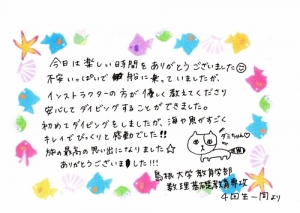 今日は楽しい時間をありがとうございました☺
不安いっぱいで船に乗っていましたが、
インストラクターの方が優しく教えてくださり
安心してダイビングすることができました。
初めてダイビングをしましたが、海や魚がすごく
キレイでびっくりと感動でした!!
旅の最高の思い出になりました☆
ありがとうございました!!!
島根大学教育学部
数理基礎教育専攻
4回生一同より